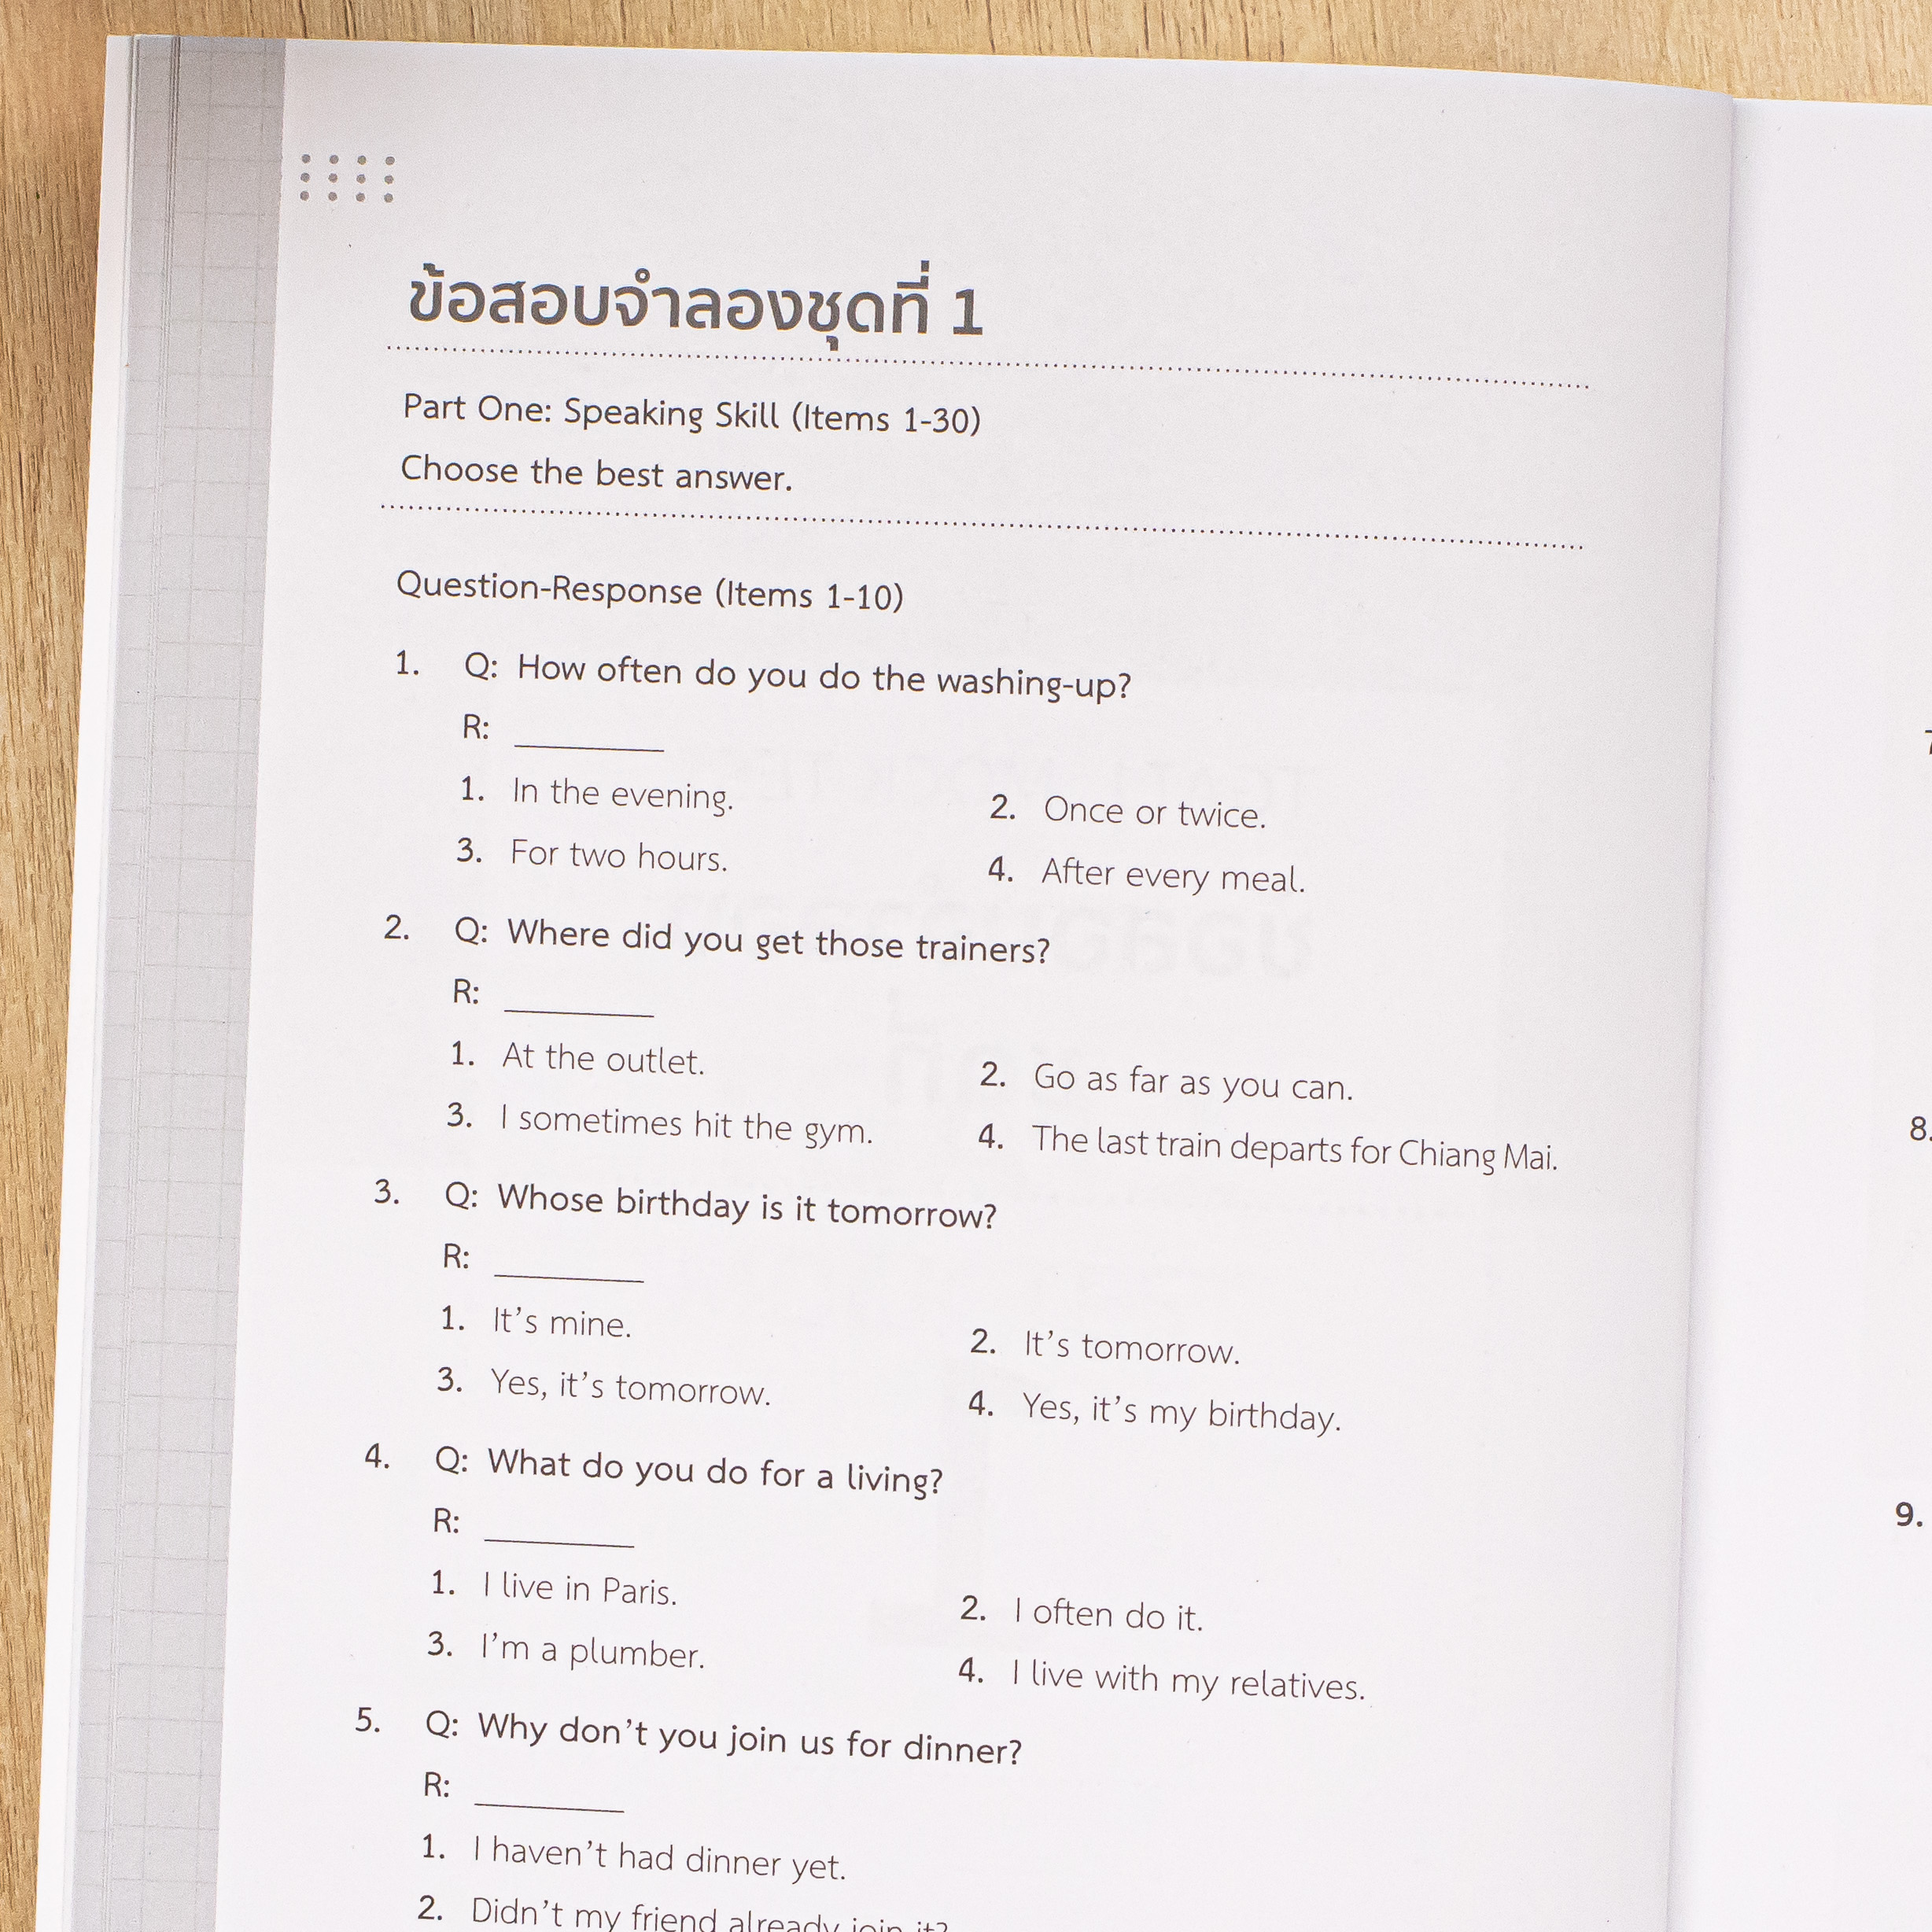 ข้อสอบจำลองชุดที่ 1
Part One: Speaking Skill (Items 1-30)
Choose the best answer.
Question-Response (Items 1-10)
1. Q: How often do you do the washing-up?
R: ________
1. In the evening. 2. Once or twice.
3. For two hours. 4. After every meal.
2. Q: Where did you get those trainers?
R: ________
1. At the outlet. 2. Go as far as you can.
3. I sometimes hit the gym. 4. The last train departs for Chiang Mai.
3. Q: Whose birthday is it tomorrow?
R: ________
1. It's mine. 2. It's tomorrow.
3. Yes, it's tomorrow. 4. Yes, it's my birthday.
4. Q: What do you do for a living?
R: ________
1. I live in Paris. 2. I often do it.
3. I'm a plumber. 4. I live with my relatives.
5. Q: Why don't you join us for dinner?
R: ________
1. I haven't had dinner yet.
2. Didn't my friend already join it?
8.
9.